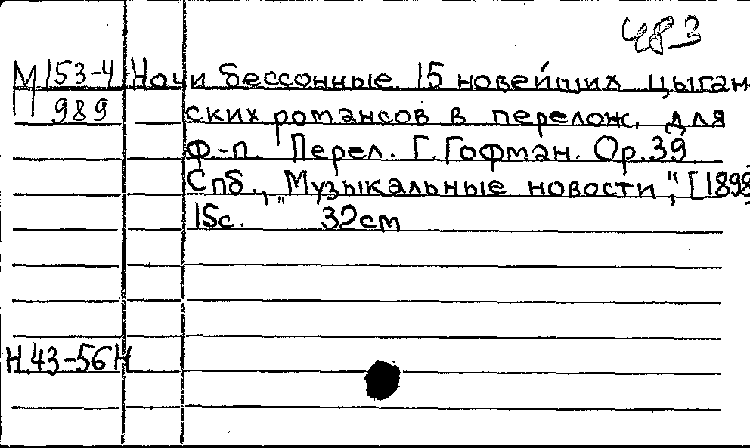 483
М 153-4 Ночи бессонные. 15 новейших цыган-
989 ских романсов в перелож. для
Ф.-п. Перел. Г. Гофман. Ор.39
Спб., "Музыкальные новости", [1898
15с. 32см
Н.43-56Н